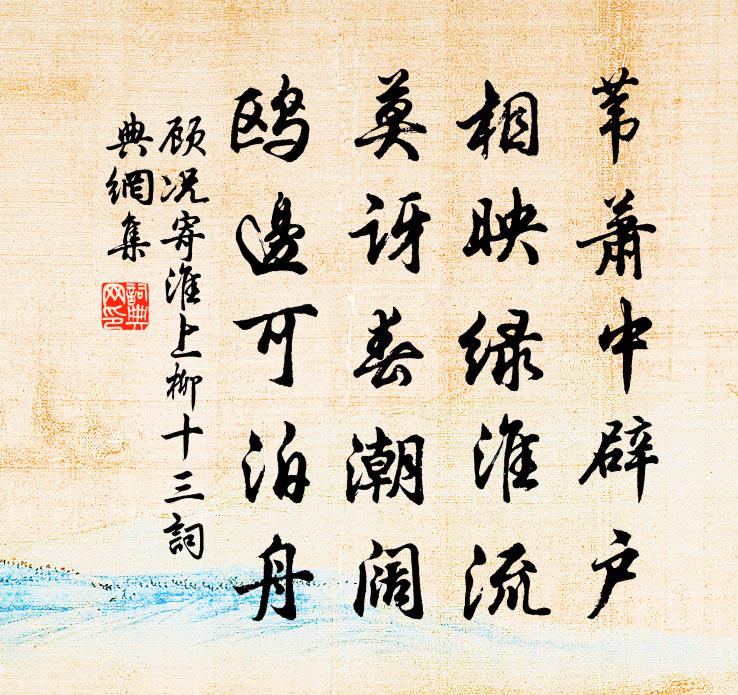 苇萧中辟户
相映绿淮流
莫讶春潮阔
鸥边可泊舟
顾况寄淮上柳十三詞
典網集
詞典网印